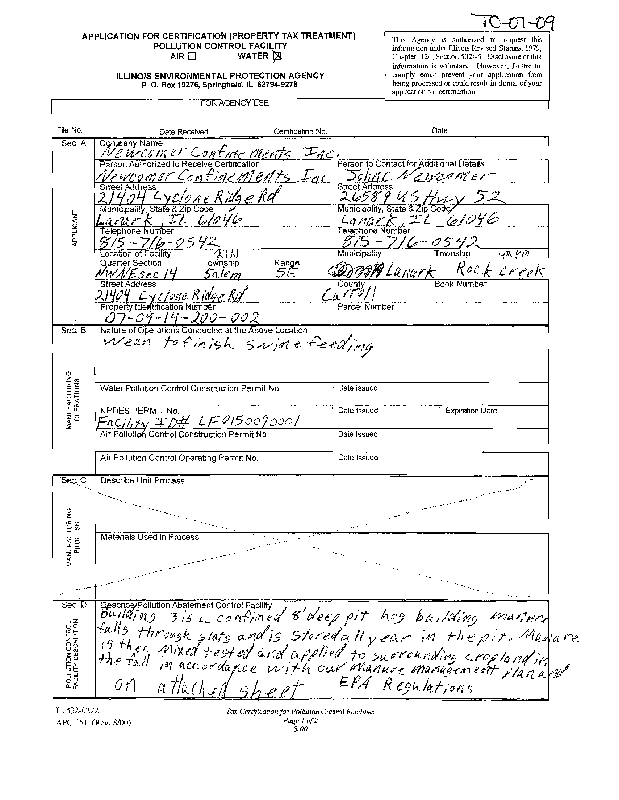 TC-07-09
APPLICATION FOR CERTIFICATION (PROPERTY TAX TREATMENT)
POLLUTION CONTROL FACILITY
AIR ☐ WATER ☒
ILLINOIS ENVIRONMENTAL PROTECTION AGENCY
P. O. Box 19276, Springfield, IL 62794-9276
This Agency is authorized to request this
information under Illinois Revised Statutes, 1979,
Disclosure of this
information is voluntary. However, failure to
comply could prevent your application from
being processed or could result in denial of your
application for certification.
FOR AGENCY USE
File No. Date Received Certification No. Date
Sec. A Company Name
Newcomer Confinements Inc.
Person Authorized to Receive Certification Person to Contact for Additional Details
Newcomer Confinements Inc Newcomer
Street Address Street Address
21404 Cyclone Ridge Rd 26589 US Hwy 52
Municipality, State & Zip Code Municipality, State & Zip Code
Lanark, IL 61046 Lanark, IL 61046
Telephone Number Telephone Number
815-716-0542 815-716-0542
Location of Facility Municipality Township
Quarter Section Township Range
NWNE sec 14 Salem 5E Lanark Rock Creek
Street Address County Book Number
21404 Cyclone Ridge Rd Carroll
Property Identification Number Parcel Number
07-09-14-200-002
APPLICANT
Sec. B Nature of Operations Conducted at the Above Location
Wean to finish swine feeding
MANUFACTURING OPERATIONS
Water Pollution Control Construction Permit No. Date Issued
NPDES PERMIT No. Date Issued Expiration Date
Facility ID# LF0150090001
Air Pollution Control Construction Permit No. Date Issued
Air Pollution Control Operating Permit No. Date Issued
Sec. C Describe Unit Process
MANUFACTURING PROCESS
Materials Used in Process
Sec. D Describe Pollution Abatement Control Facility
Building 3 is a confined 8' deep pit hog building manure
falls through slats and is stored all year in the pit. Manure
is then mixed tested and applied to surrounding cropland in
the fall in accordance with our manure management plan and
on attached sheet EPA Regulations
POLLUTION CONTROL FACILITY DESCRIPTION
Tax Certification for Pollution Control Facilities
Page 1 of 2